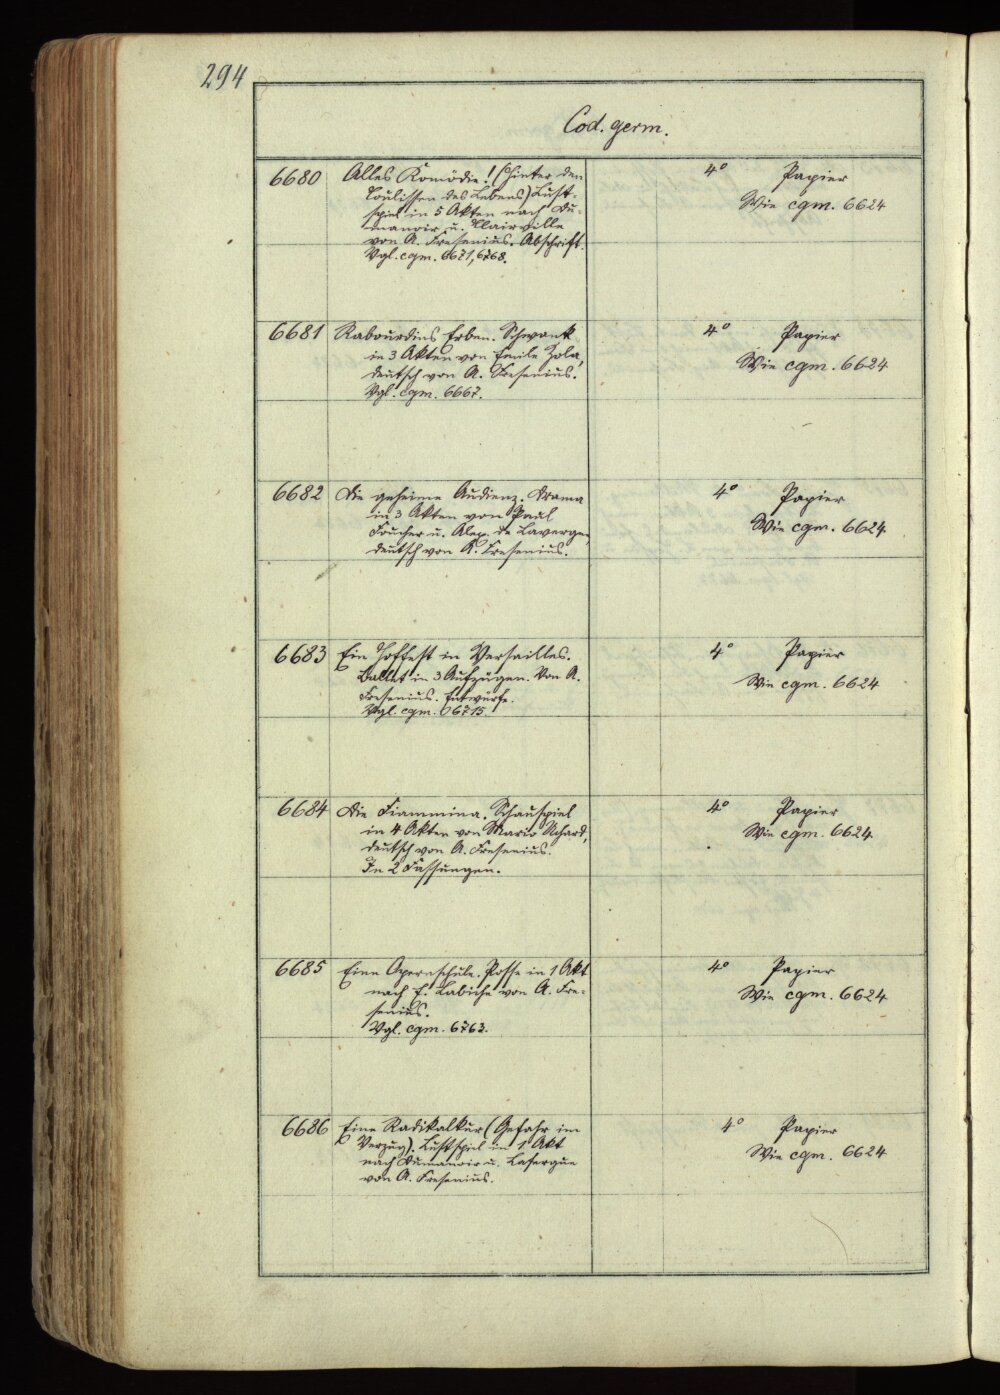 294
Cod. germ.
6680 Alles Komödie! (Hinter den
Coulissen des Lebens) Lust-
spiel in 5 Akten nach Du-
manoir u. Clairville
von A. Fresenius. Abschrift
Vgl. cgm. 6671, 6768.
4° Papier
Wie cgm. 6624
6681 Rabourdins Erben. Schwank
in 3 Akten von Emile Zola,
deutsch von A. Fresenius.
Vgl. cgm. 6667.
4° Papier
Wie cgm. 6624
6682 Die geheime Audienz. Drama
in 3 Akten von Paul
Foucher u. Alex. de Lavergne,
deutsch von A. Fresenius.
4° Papier
Wie cgm. 6624
6683 Ein Hoffest in Versailles.
Ballet in 3 Aufzügen. Von A.
Fresenius. Entwürfe.
Vgl. cgm. 6715
4° Papier
Wie cgm. 6624
6684 Die Fiammina. Schauspiel
in 4 Akten von Mario Uchard,
deutsch von A. Fresenius.
In 2 Fassungen.
4° Papier
Wie cgm. 6624
6685 Eine Opernschule. Posse in 1 Akt
nach E. Labiche von A. Fre-
senius.
Vgl. cgm. 6763.
4° Papier
Wie cgm. 6624
6686 Eine Radikalkur (Gefahr im
Verzug). Lustspiel in 1 Akt
nach Dumanoir u. Lafargue
von A. Fresenius.
4° Papier
Wie cgm. 6624